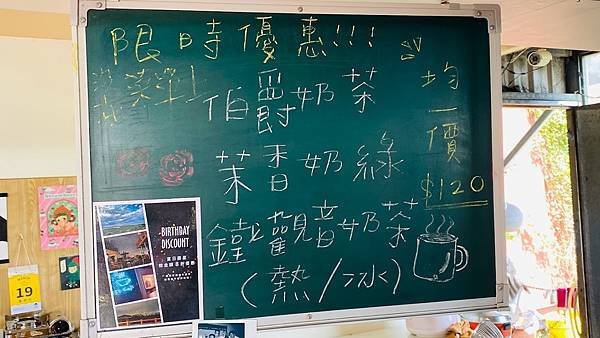 限時優惠!!!
伯爵奶茶
茉香奶綠
鐵觀音奶茶
(熱/冰)
均一價
$120
BIRTHDAY
DISCOUNT
19